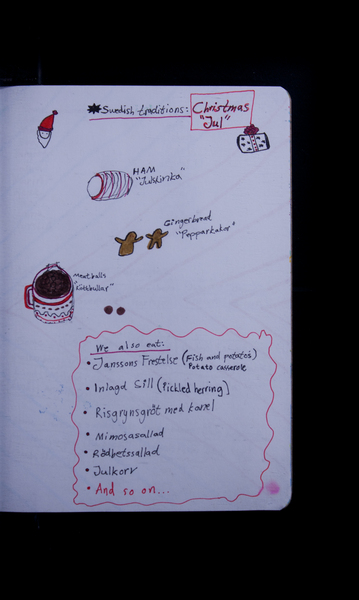 Swedish traditions: Christmas
"Jul"
HAM
"Julskinka"
Gingerbread
"Pepparkakor"
Meatballs
"Köttbullar"
We also eat:
• Janssons Frestelse (Fish and potatos)
Potato casserole
• Inlagd Sill (Pickled herring)
• Risgrynsgröt med kanel
• Mimosasallad
• Rödbetssallad
• Julkorv
• And so on...